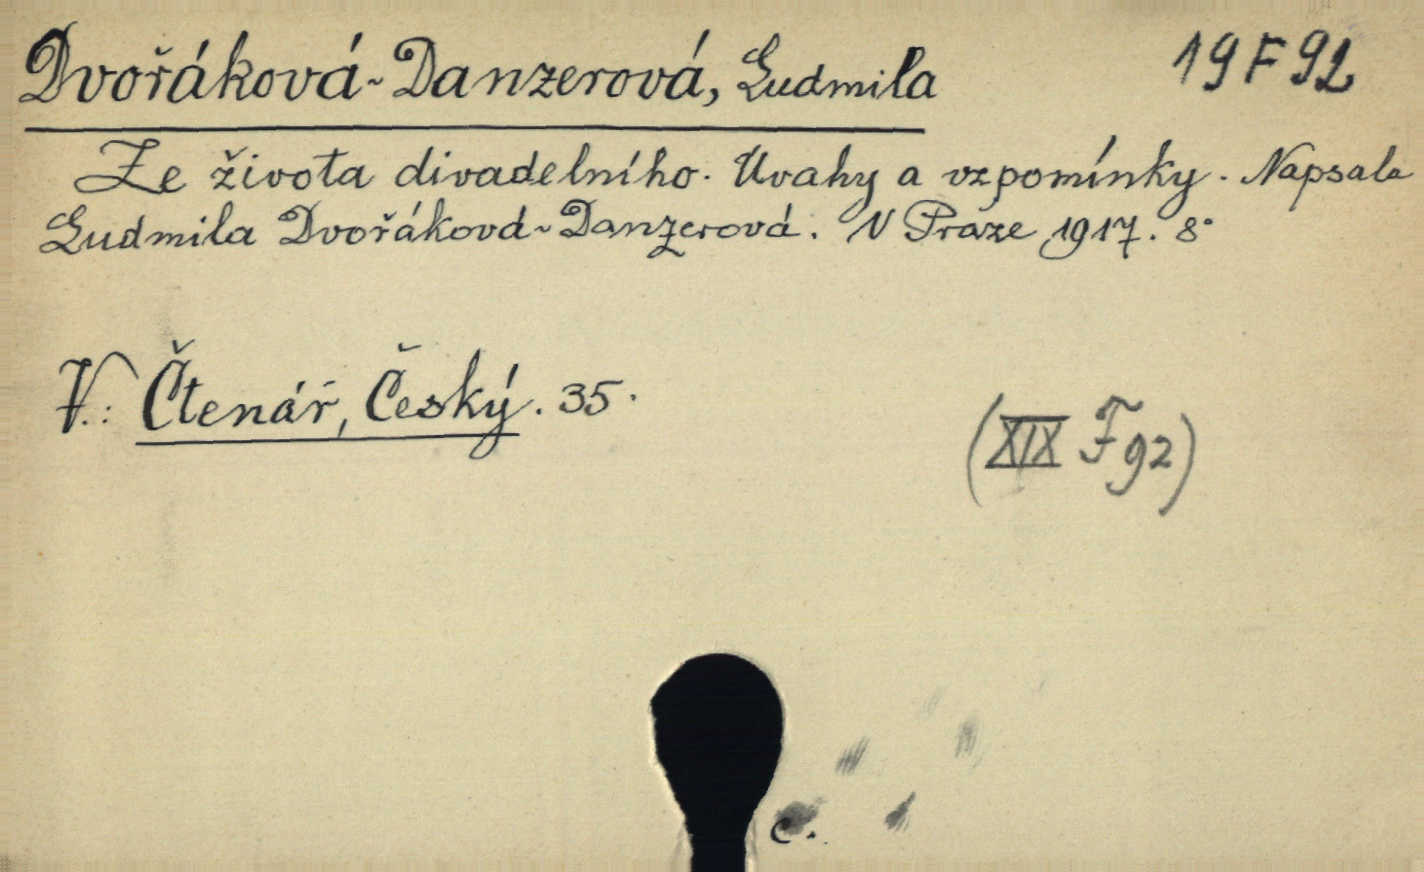 Dvořáková-Danzerová, Ludmila 19 F 92
Ze života divadelního. Úvahy a vzpomínky. Napsala
Ludmila Dvořáková-Danzerová. V Praze 1917. 8°
V.: Čtenář, Český. 35.
(XIX F 92)
C.